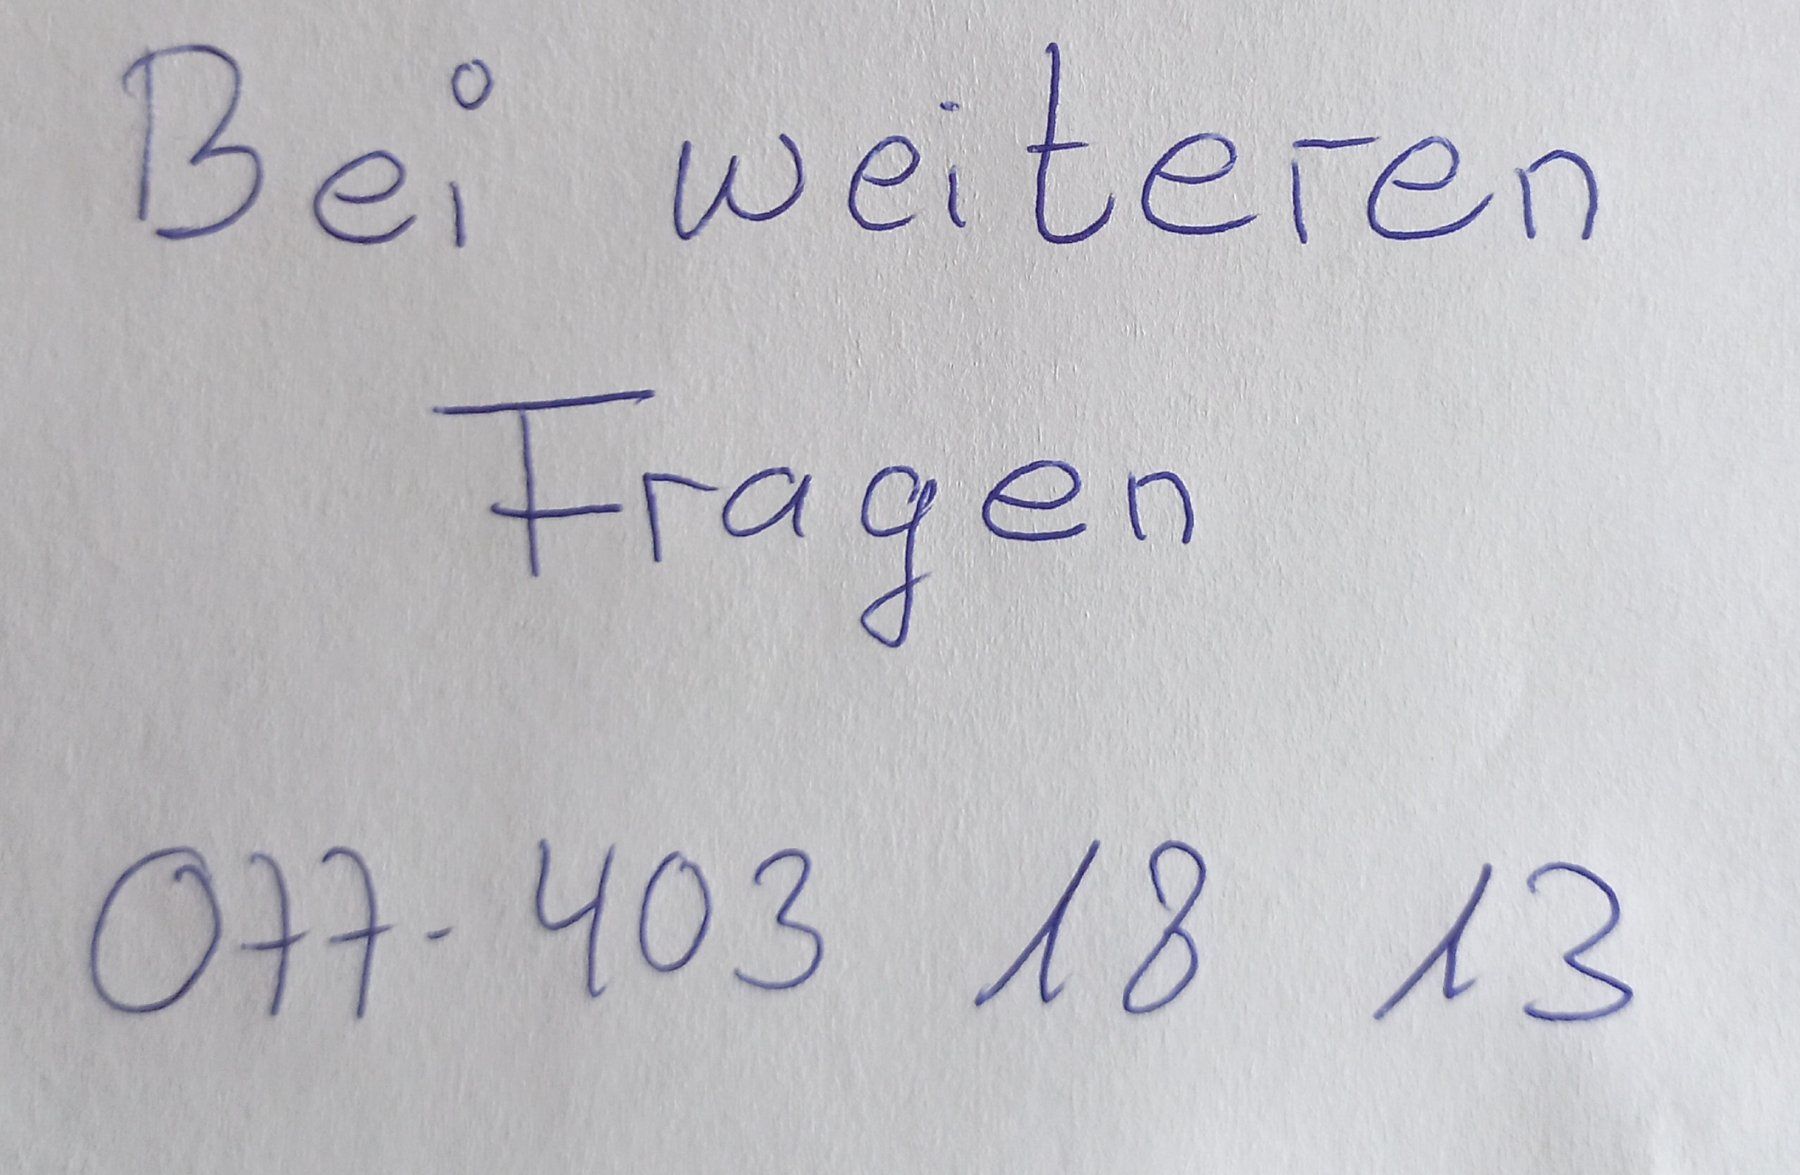 Bei weiteren
Fragen
077- 403 18 13